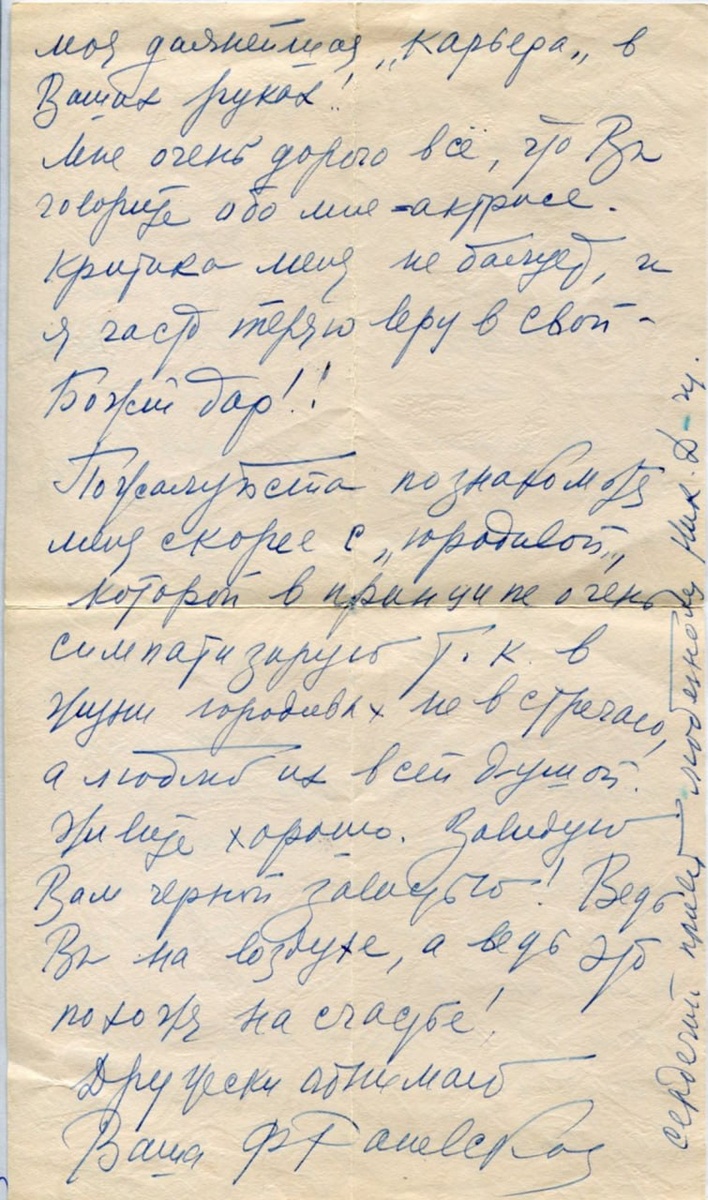 моя дальнейшая „карьера„ в
Ваших руках!
Мне очень дорого всё, что Вы
говорите обо мне-актрисе.
Критика меня не балует, и
я часто теряю веру в свой-
Божий дар!!
Пожалуйста познакомьте
меня скорее с „юродивой„
которой в принципе очень
симпатизирую т.к. в
жизни юродивых не встречаю,
а люблю их всей душой.
Живите хорошо. Завидую
Вам черной завистью! Ведь
Вы на воздухе, а ведь это
похоже на счастье!
Дружески обнимаю
Ваша ФРаневская
сердечный привет любезному Ник. Д-чу.